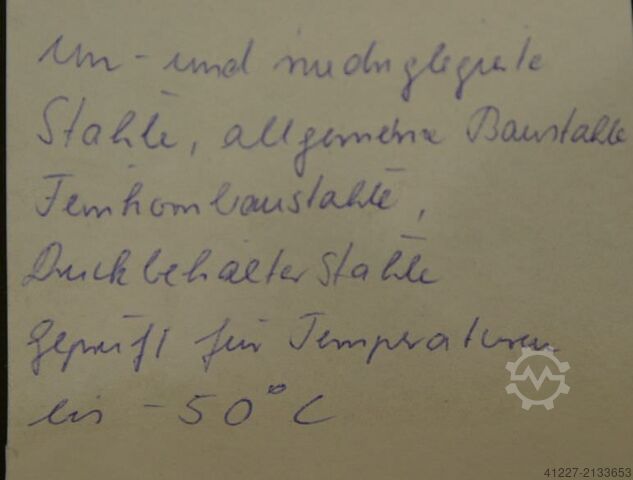 Un- und niedriglegierte
Stähle, allgemeine Baustähle
Feinkornbaustähle,
Druckbehälter Stähle
Geprüft für Temperaturen
bis -50°C
41227-2133653